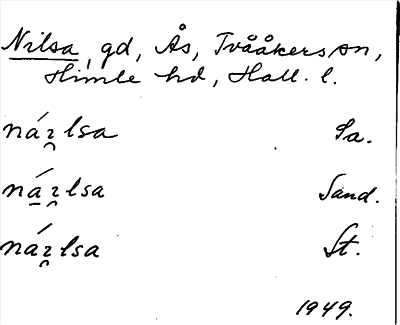 Nilsa, gd, Ås, Tvååkers sn,
Himle hd, Hall. l.
náɿ̯lsa Sa.
ná̱ɿ̯lsa Sand.
náɿ̯lsa St.
1949.